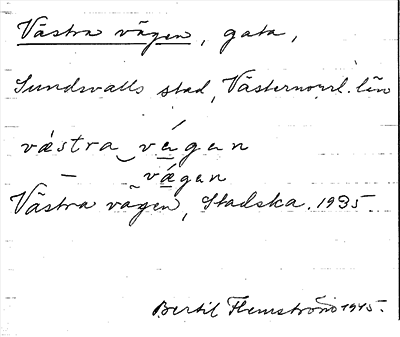 Västra vägen, gata,
Sundsvalls stad, Västernorrl. län
væ´stra‿vé̱gan
— væ̱gan
Västra vägen, Stadska. 1935.
Bertil Flemström 1945.